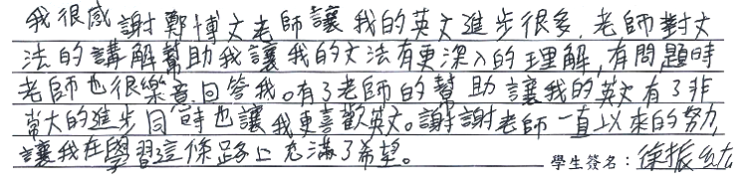 我很感謝鄭博文老師讓我的英文進步很多，老師對文
法的講解幫助我讓我的文法有更深入的理解，有問題時
老師也很樂意回答我。有了老師的幫助讓我的英文有了非
常大的進步同時也讓我更喜歡英文。謝謝老師一直以來的努力
讓我在學習這條路上充滿了希望。 學生簽名：徐振